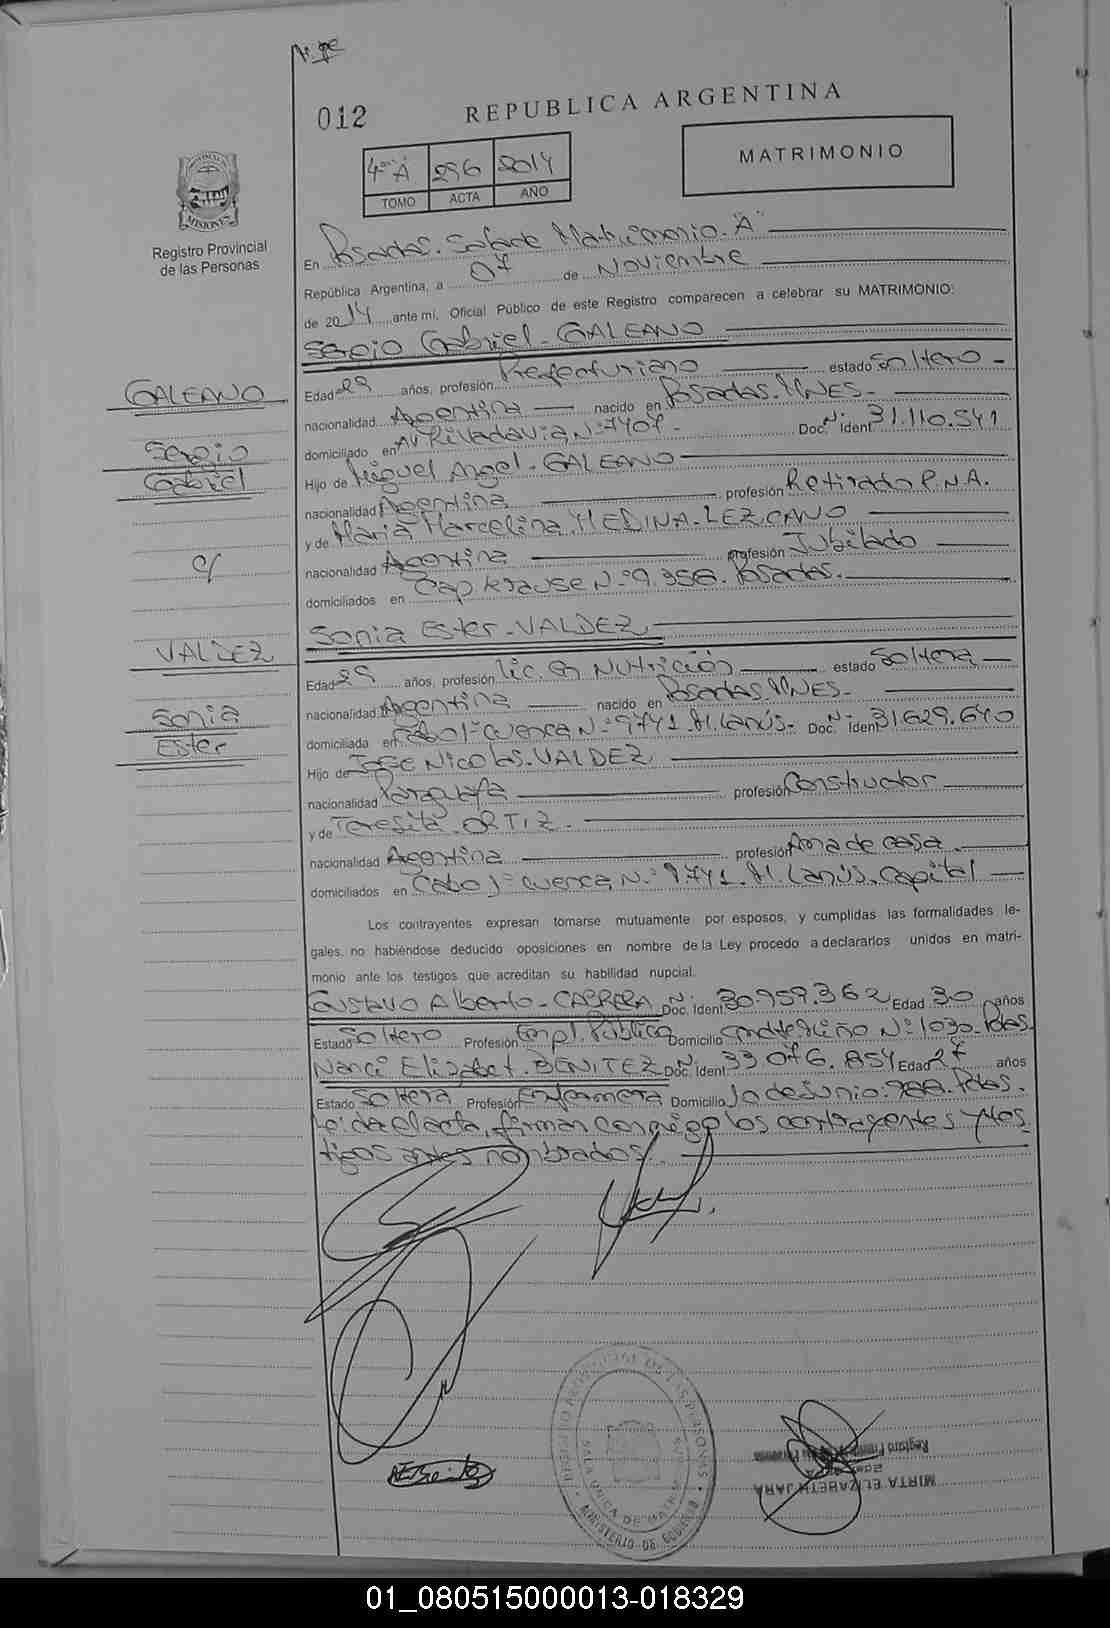 012
REPUBLICA ARGENTINA
MATRIMONIO
4º A 296 2014
TOMO ACTA AÑO
PROVINCIA MISIONES
Registro Provincial
de las Personas
En Posadas. Sala de Matrimonio. "A"
República Argentina, a 07 de Noviembre
de 2014 ante mi, Oficial Público de este Registro comparecen a celebrar su MATRIMONIO:
Sergio Gabriel - GALEANO
GALEANO
Sergio
Gabriel
c/
VALDEZ
Sonia
Ester
Edad 29 años, profesión Prefecturiano estado Soltero -
nacionalidad Argentina nacido en Posadas. MNES.
domiciliado en Av Rivadavia N:º7407 - Doc. Nº Ident 31.110.541
Hijo de Miguel Angel - GALEANO
nacionalidad Argentina profesión Retirado P.N.A.
y de Maria Marcelina MEDINA LEZCANO
nacionalidad Argentina profesión Jubilado
domiciliados en Cap Krause N:º9.356. Posadas.
Sonia Ester - VALDEZ
Edad 29 años, profesión Lic. en Nutrición estado Soltera
nacionalidad Argentina nacido en Posadas. MNES.
domiciliada en Cabo 1º Cuenca N:º9741. A. Lanús - Doc. Nº Ident 31.629.640
Hijo de Jose Nicolas - VALDEZ
nacionalidad Paraguaya profesión Constructor
y de Teresita ORTIZ.
nacionalidad Argentina profesión Ama de casa.
domiciliados en Cabo 1º Cuenca N:º9741. A. Lanús. Capital
Los contrayentes expresan tomarse mutuamente por esposos, y cumplidas las formalidades le-
gales, no habiéndose deducido oposiciones en nombre de la Ley procedo a declararlos unidos en matri-
monio ante los testigos que acreditan su habilidad nupcial.
Gustavo Alberto - CABRERA Doc. Nº Ident. 30.959.362 Edad 30 años
Estado Soltero Profesión Empl. Público Domicilio Nº 1030. Pdas.
Nanci Elizabet. BENITEZ Doc. Nº Ident 33.076.854 Edad 27 años
Estado Soltera Profesión Enfermera Domicilio de Junio. Pdas.
Leida el acta, firman conmigo los contrayentes y tes
tigos antes nombrados.
MINISTERIO DE GOBIERNO
MIRTA ELIZABETH JARA
01_080515000013-018329